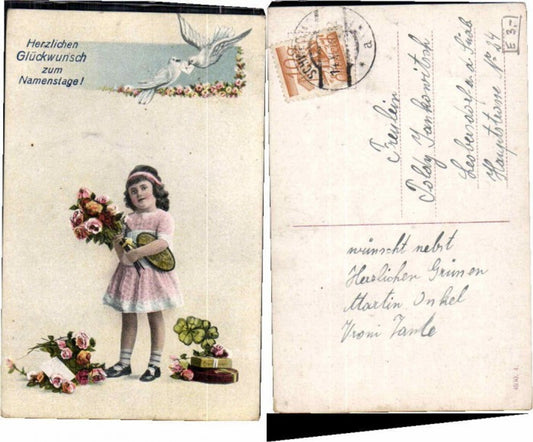 Herzlichen
Glückwunsch
zum
Namenstage!
E 3.-
a
Freulein
Poldy Jankowitsch
Leobersdorf a. d. Saab
Hauptstrasse No 34
wünscht nebst
Herzlichen Grüssen
Martin Onkel
Vroni Tante